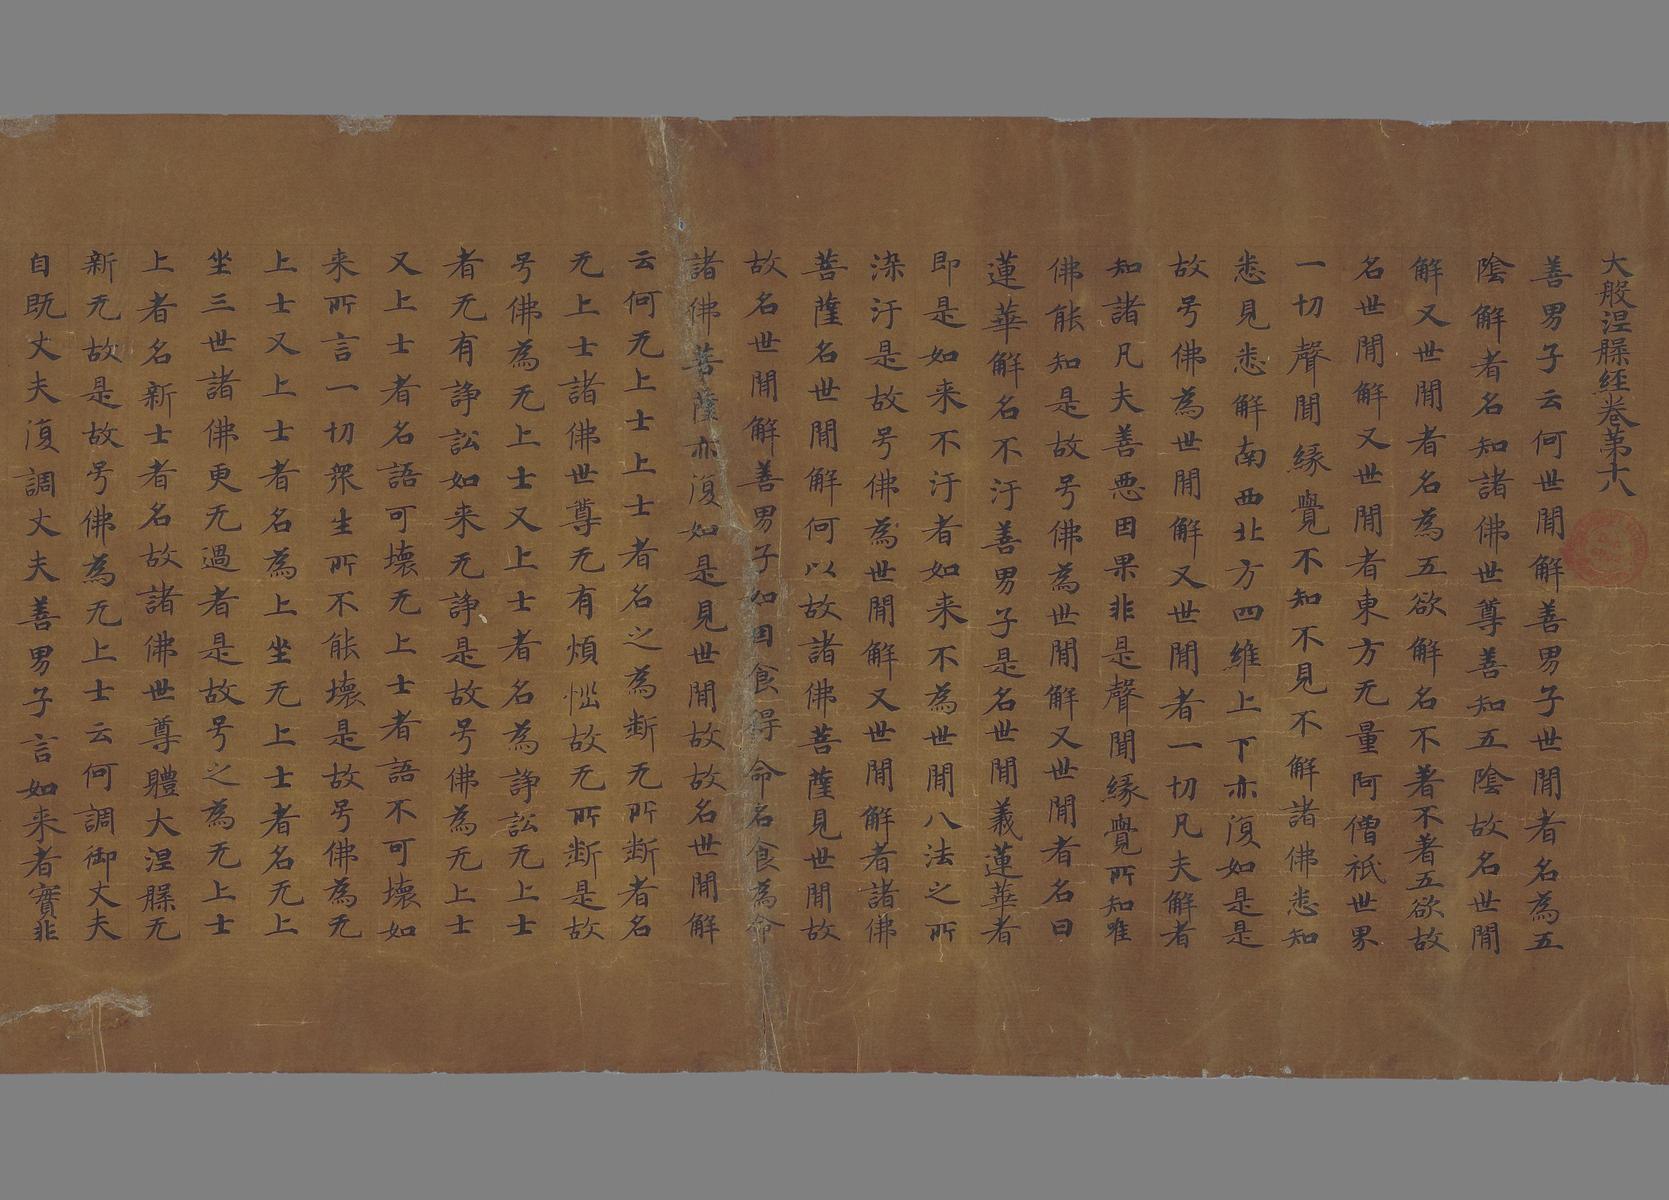 大般涅槃経巻第十八
善男子云何世間解善男子世間者名為五
陰解者名知諸佛世尊善知五陰故名世間
解又世間者名為五欲解名不著不著五欲故
名世間解又世間者東方无量阿僧祇世界
一切聲聞縁覺不知不見不解諸佛悉知
悉見悉解南西北方四維上下亦復如是是
故号佛為世間解又世間者一切凡夫解者
知諸凡夫善惡因果非是聲聞縁覺所知唯
佛能知是故号佛為世間解又世間者名曰
蓮華解名不汙善男子是名世間義蓮華者
即是如来不汙者如来不為世間八法之所
染汙是故号佛為世間解又世間解者諸佛
菩薩名世間解何以故諸佛菩薩見世間故
故名世間解善男子如因食得命名食為命
諸佛菩薩亦復如是見世間故故名世間解
云何无上士上士者名之為斷无所斷者名
无上士諸佛世尊无有煩惱故无所斷是故
号佛為无上士又上士者名為諍訟无上士
者无有諍訟如来无諍是故号佛為无上士
又上士者名語可壊无上士者語不可壊如
来所言一切衆生所不能壊是故号佛為无
上士又上士者名為上坐无上士者名无上
坐三世諸佛更无過者是故号之為无上士
上者名新士者名故諸佛世尊體大涅槃无
新无故是故号佛為无上士云何調御丈夫
自既丈夫復調丈夫善男子言如来者實非